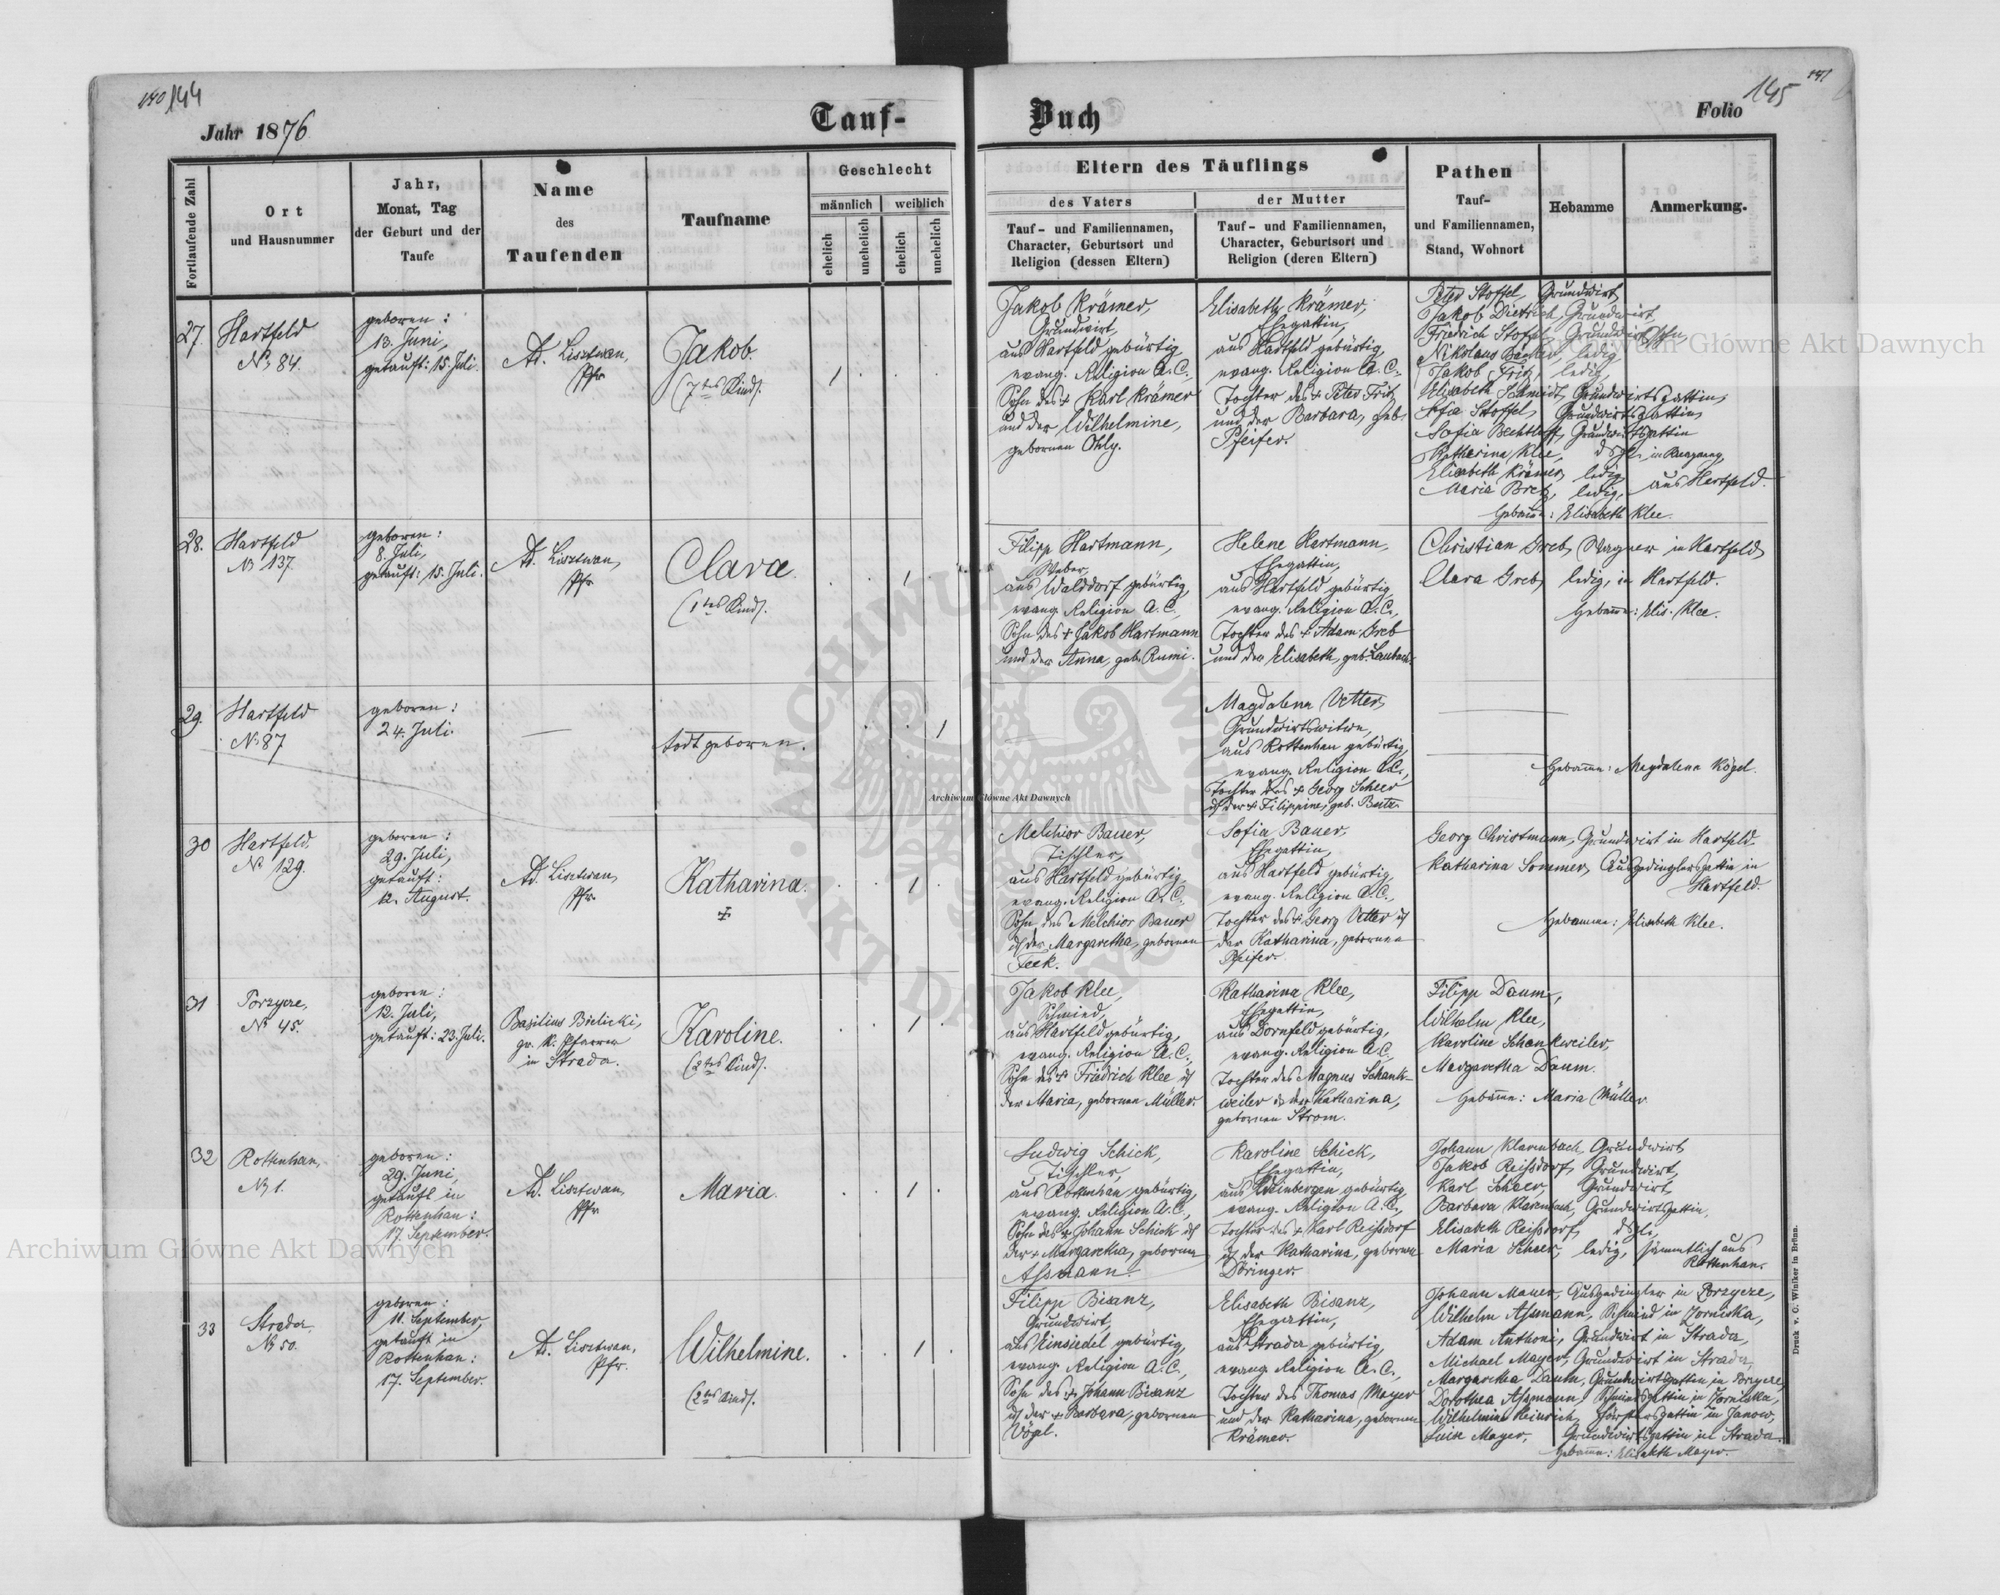 140 144
Jahr 1876
Tauf-
Fortlaufende Zahl
Ort
und Hausnummer
Jahr,
Monat, Tag
der Geburt und der
Taufe
Name
des
Taufenden
Taufname
Geschlecht
männlich
weiblich
ehelich
unehelich
ehelich
unehelich
27.
Hartfeld
No 84.
geboren:
13. Juni,
getauft: 15. Juli.
Ad. Lisztwan,
Pfr
Jakob.
(7tes Kind).
1
28.
Hartfeld
No 137
geboren:
8. Juli,
getauft: 15. Juli.
Ad. Lisztwan,
Pfr.
Clara.
(1tes Kind).
1
29.
Hartfeld
No 87
geboren:
24. Juli.
—
todt geboren.
1
30
Hartfeld.
No 129.
geboren:
29. Juli,
getauft:
12. August.
Ad. Lisztwan,
Pfr.
Katharina.
+
1
31
Porzycze,
No 45.
geboren:
12. Juli,
getauft: 23. Juli.
Basilius Bielicki,
gr. k. Pfarrer
in Strada.
Karoline.
(2tes Kind).
1
32
Rottenhan,
No 1.
geboren:
29. Juni,
getauft in
Rottenhan:
17. September.
Ad. Lisztwan,
Pfr
Maria.
1
33
Strada,
No 50.
geboren:
11. September,
getauft in
Rottenhan:
17. September.
Ad. Lisztwan,
Pfr.
Wilhelmine.
(2tes Kind).
1
Buch
Folio 145
141
Eltern des Täuflings
des Vaters
Tauf- und Familiennamen,
Character, Geburtsort und
Religion (dessen Eltern)
der Mutter
Tauf- und Familiennamen,
Character, Geburtsort und
Religion (deren Eltern)
Pathen
Tauf-
und Familiennamen,
Stand, Wohnort
Hebamme
Anmerkung.
Jakob Krämer,
Grundwirt,
aus Hartfeld gebürtig,
evang. Religion A. C.,
Sohn des + Karl Krämer
und der Wilhelmine,
gebornen Ohly.
Elisabeth Krämer,
Ehegattin,
aus Hartfeld gebürtig,
evang. Religion A. C.,
Tochter des + Peter Fritz
und der Barbara, geb.
Pfeifer.
Peter Stoffel, Grundwirt,
Jakob Dietrich, Grundwirt,
Friedrich Stoffel, Grundwirtssohn,
Nikolaus Bäcker, ledig,
Jakob Fritz, ledig,
Elisabeth Schmidt, Grundwirtsgattin,
Stoffel, Grundwirtsgattin,
Sofia Bechtloff, Grundwirtsgattin
Katharina Klee,
Elisabeth Krämer, ledig,
Maria Bretz, ledig, aus Hartfeld.
Hebamme: Elisabeth Klee.
Filipp Hartmann,
Weber,
aus Walddorf gebürtig,
evang. Religion A. C.,
Sohn des + Jakob Hartmann
und der Anna, geb. Rumi.
Helene Hartmann,
Ehegattin,
aus Hartfeld gebürtig,
evang. Religion A. C.,
Tochter des + Adam Greb
und der Elisabeth, geb. Laubach.
Christian Greb, Wagner in Hartfeld
Clara Greb, ledig, in Hartfeld.
Hebamme: Elis. Klee.
Magdalena Vetter,
Grundwirtswitwe,
aus Rottenhan gebürtig,
evang. Religion A. C.,
Tochter des + Georg Scheer
u der + Filippine, geb. Beitz.
Hebamme: Magdalena Kögel.
Melchior Bauer,
Tischler,
aus Hartfeld gebürtig,
evang. Religion A. C.,
Sohn des Melchior Bauer
u der Margaretha, gebornen
Feek.
Sofia Bauer,
Ehegattin,
aus Hartfeld gebürtig,
evang. Religion A. C.,
Tochter des + Georg Vetter u
der Katharina, gebornen
Pfeifer.
Georg Christmann, Grundwirt in Hartfeld
Katharina Sommer, Ausgedinglersgattin in
Hartfeld.
Hebamme: Elisabeth Klee.
Jakob Klee,
Schmied,
aus Hartfeld gebürtig,
evang. Religion A. C.,
Sohn des + Friedrich Klee u
der Maria, gebornen Müller.
Katharina Klee,
Ehegattin,
aus Dornfeld gebürtig,
evang. Religion A. C.,
Tochter des Magnus Schank-
weiler u der Katharina,
gebornen Strom.
Filipp Daum,
Wilhelm Klee,
Karoline Schankweiler,
Margaretha Daum.
Hebamme: Maria Müller
Ludwig Schick,
Tischler,
aus Rottenhan gebürtig,
evang. Religion A. C.,
Sohn des + Johann Schick u
der + Margaretha, gebornen
Assmann.
Karoline Schick,
Ehegattin,
aus Weinbergen gebürtig,
evang. Religion A. C.,
Tochter des + Karl Reissdorf
u der Katharina, gebornen
Döringer.
Johann Klarenbach, Grundwirt,
Jakob Reissdorf, Grundwirt,
Karl Scheer, Grundwirt,
Barbara Klarenbach, Grundwirtsgattin,
Elisabeth Reissdorf,
Maria Scheer, ledig, sämmtlich aus
Rottenhan.
Filipp Bisanz,
Grundwirt,
aus Einsiedel gebürtig,
evang. Religion A. C.,
Sohn des + Johann Bisanz
u der + Barbara, gebornen
Vögl.
Elisabeth Bisanz,
Ehegattin,
aus Strada gebürtig,
evang. Religion A. C.,
Tochter des Thomas Mayer
und der Katharina, gebornen
Krämer.
Johann Mauer, Ausgedingler in Porzycze,
Wilhelm Assmann, Schmied in Zorniska,
Adam Anthoni, Grundwirt in Strada,
Michael Mayer, Grundwirt in Strada,
Margaretha Daum, Grundwirtsgattin in Porzycze,
Dorothea Assmann, Schmiedsgattin in Zorniska,
Wilhelmine Heinrich, Förstersgattin in Janow,
Luise Mayer, Grundwirtsgattin in Strada.
Hebamme: Elisabeth Mayer.
Druck v. C. Winiker in Brünn.
Archiwum Główne Akt Dawnych
Archiwum Główne Akt Dawnych
Archiwum Główne Akt Dawnych